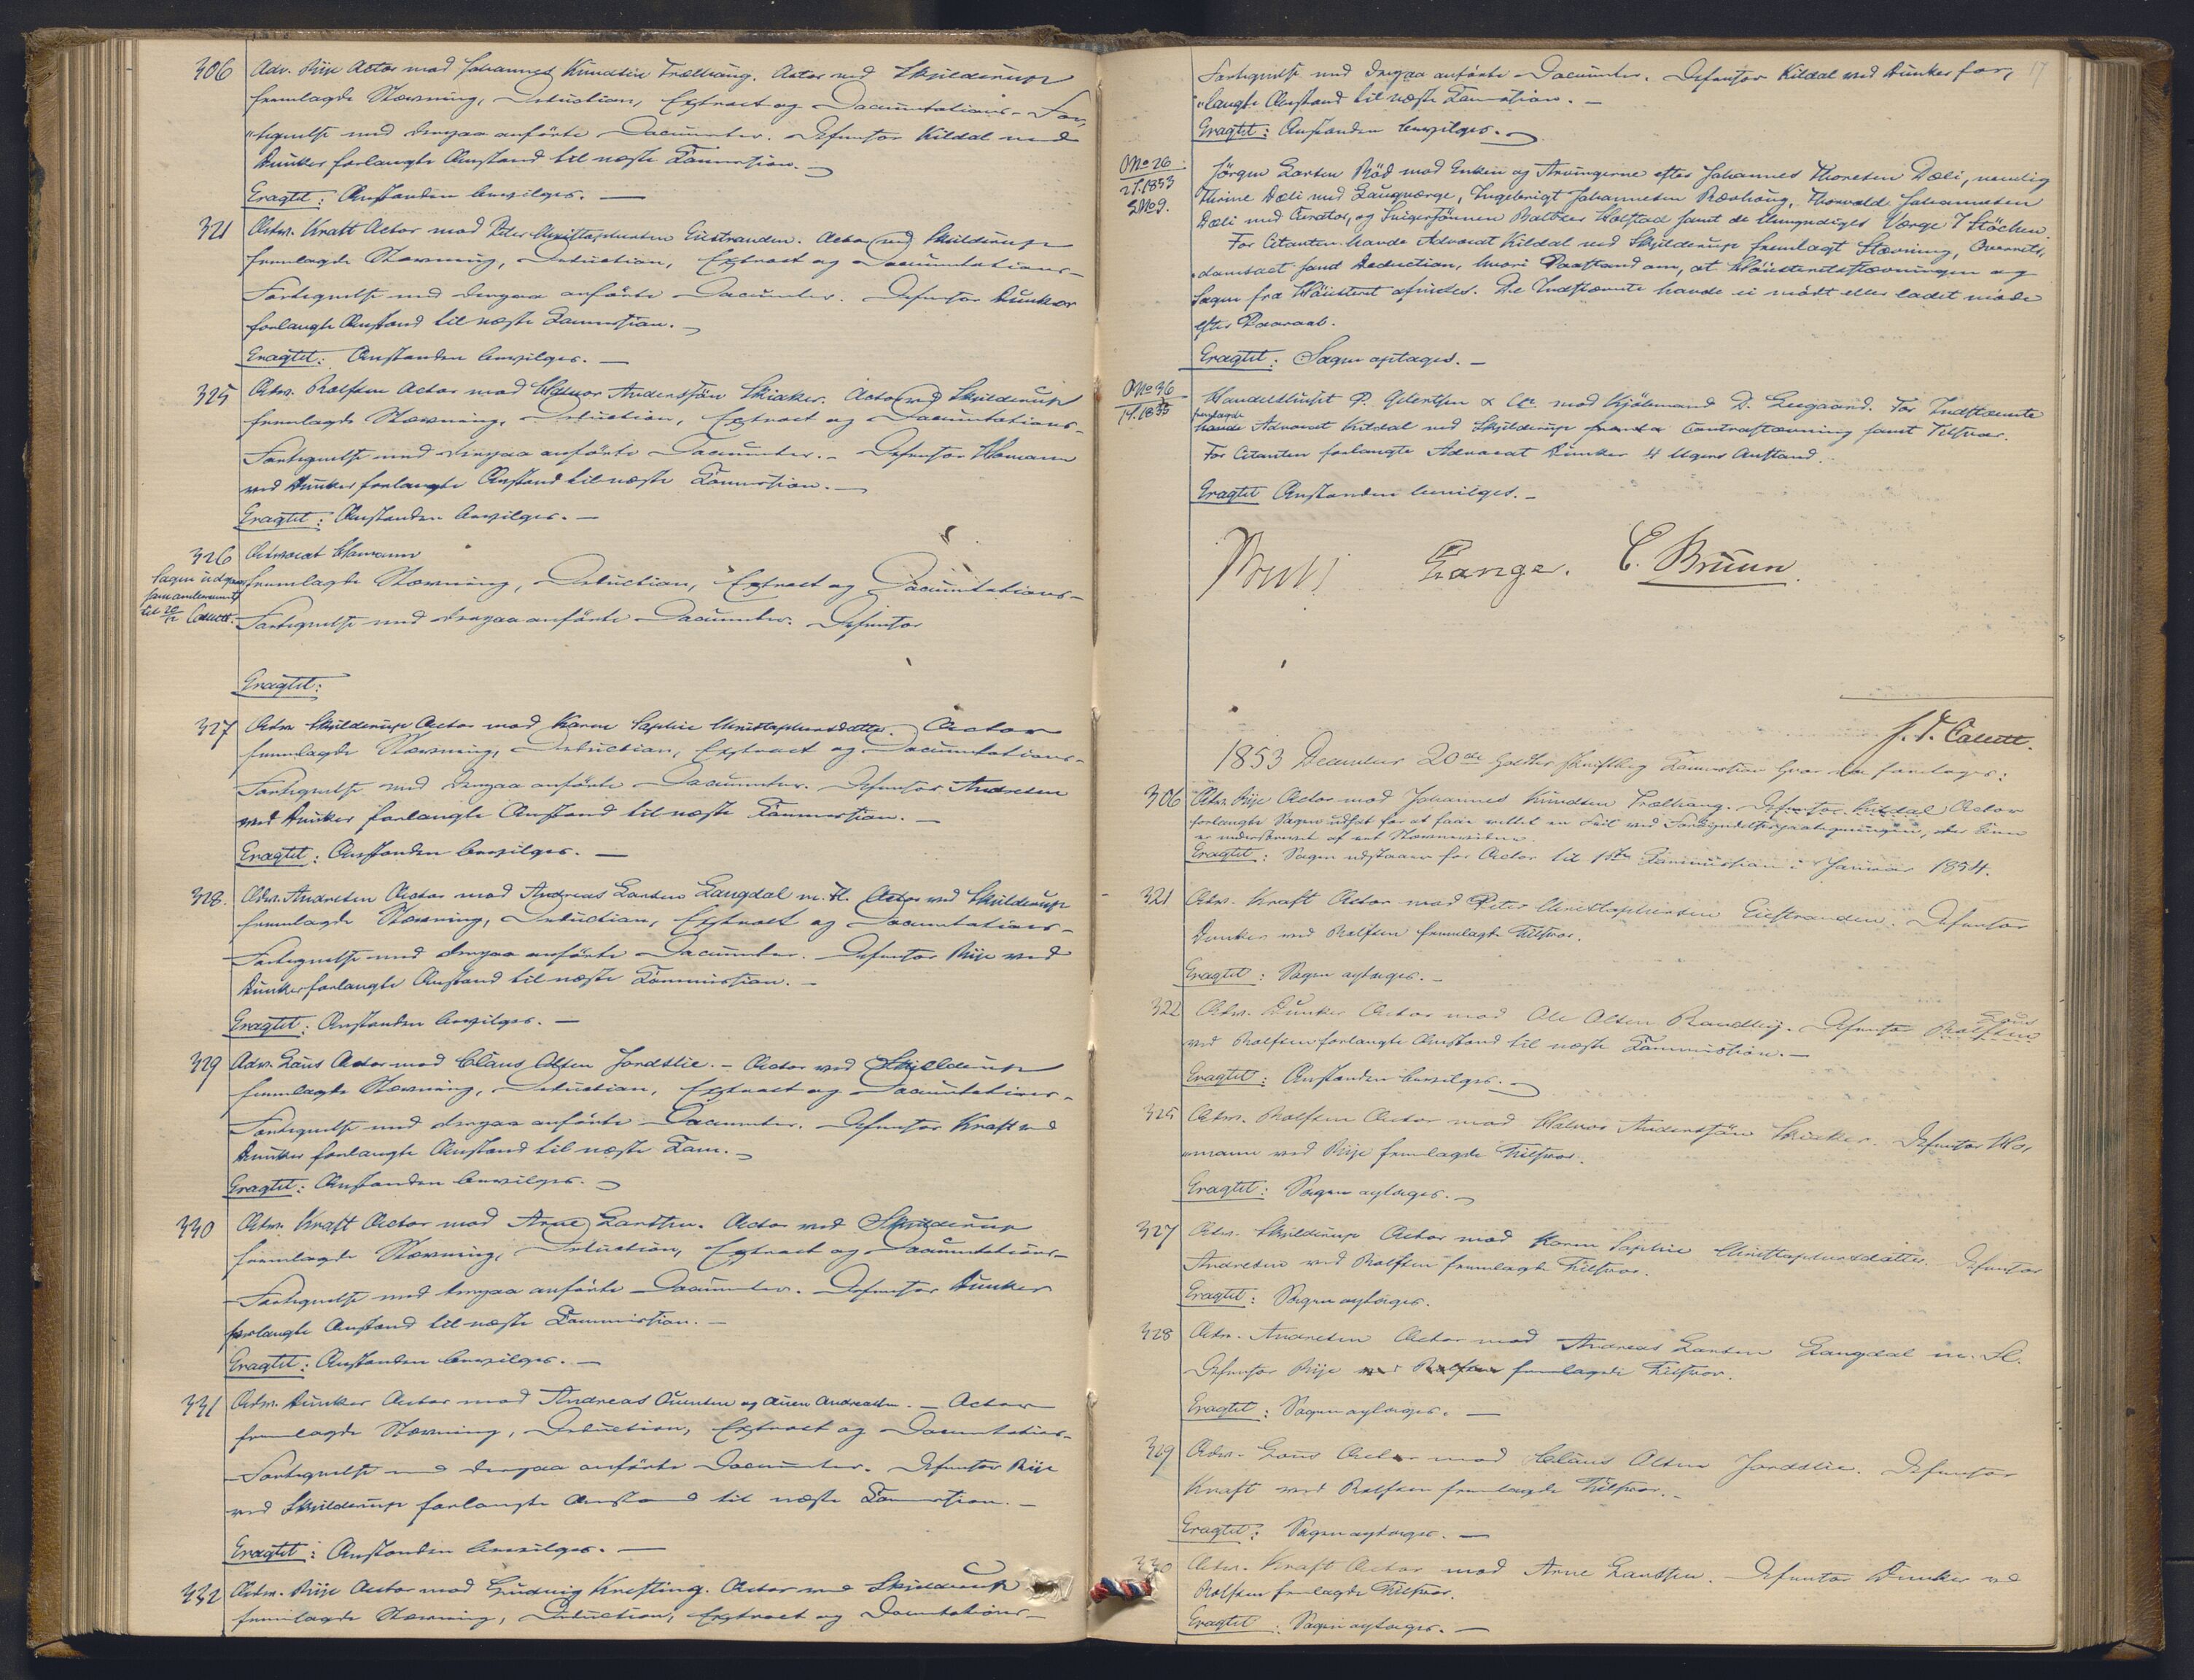 306 Adv. Rije Actor mod Johannes Knudsen Trælhaug. Actor ved Skjilderup
fremlagde Stævning, Deduction, Extract og Documentations-For-
"tegnelse med derpaa anførte Documenter. Defensor Kildal ved
Dunker forlangte Anstand til næste Commission. —
Eragtet: Anstanden bevilges. —
321 Adv. Kraft Actor mod Peter Christophersen Eiestranden. Actor ved Skjilderup
fremlagde Stævning, Deduction, Extract og Documentations-
Fortegnelse med derpaa anførte Documenter. Defensor Dunker
forlangte Anstand til næste Commission. —
Eragtet: Anstanden bevilges. —
325 Adv. Rolfsen Actor mod Halvor Andersøn Skiaker. Actor ved Skjilderup
fremlagde Stævning, Deduction, Extract og Documentations-
Fortegnelse med derpaa anførte Documenter. - Defensor Homann
ved Dunker forlangte Anstand til næste Commission. —
Eragtet: Anstanden bevilges. —
326 Advocat Homann
Sagen
fremlagde Stævning, Deduction, Extract og Documentations-
til 20/12
Fortegnelse med derpaa anførte Documenter. Defensor
Eragtet:
327 Adv. Skjilderup Actor mod Karen Sophie Christophersdatter. Actor
fremlagde Stævning, Deduction, Extract og Documentations-
Fortegnelse med derpaa anførte Documenter. Defensor Andresen
ved Dunker forlangte Anstand til næste Commission. —
Eragtet: Anstanden bevilges. —
328. Adv. Andresen Actor mod Andreas Larsen Langdal m. Fl. Actor ved Skjilderup
fremlagde Stævning, Deduction, Extract og Documentations-
Fortegnelse med derpaa anførte Documenter. Defensor Rije ved
Dunker forlangte Anstand til næste Commission. —
Eragtet: Anstanden bevilges. —
329 Adv. Lous Actor mod Claus Olsen Jordslie. - Actor ved Skjelderup
fremlagde Stævning, Deduction, Extract og Documentations-
Fortegnelse med derpaa anførte Documenter. Defensor Kraft ved
Dunker forlangte Anstand til næste Com. —
Eragtet: Anstanden bevilges. —
330 Adv. Kraft Actor mod Arne Larssen. Actor ved Skjilderup
fremlagde Stævning, Deduction, Extract og Documentations-
Fortegnelse med derpaa anførte Documenter. Defensor Dunker
forlangte Anstand til næste Commission. —
Eragtet: Anstanden bevilges. —
331 Adv. Dunker Actor mod Andreas og — Actor
fremlagde Stævning, Deduction, Extract og Documentations-
Fortegnelse med derpaa anførte Documenter. Defensor Rije
ved Skjilderup forlangte Anstand til næste Commission. —
Eragtet: Anstanden bevilges. —
332 Adv. Rije Actor mod Ludvig Kresting. Actor ved Skjilderup
fremlagde Stævning, Deduction, Extract og Documentations-
17
Fortegnelse med derpaa anførte Documenter. Defensor Kildal ved Dunker for-
"langte Anstand til næste Commission. —
Eragtet: Anstanden bevilges. —
No 26
1853
L No 9.
Jörgen Larsen Röd mod Enken og Arvingerne efter Johannes Thoresen Dæli, nemlig
Thrine Dæli med Laugværge, Ingebrigt Johannesen Rævhoug, Thorvald Johannesen
Dæli med Curator, og Svigersönnen Balzer Holstad samt de Umyndiges Værge
For Citanten havde Advocat Kildal ved Skjilderup fremlagt Stævning, Overrets-
"domsact samt Deduction, hvori Paastand om, at Höiesteretsstævningen og
Sagen fra Höiesteret afvises. De Indstævnte havde ei mödt eller ladet möde
efter Paaraab.
Eragtet: Sagen optages. —
No 36
1853
Handelshuset P. Gelertsen & Co. mod Kjöbmand D. Leegaard. For Indstævnte
fremlagde
havde Advocat Kildal ved Skjilderup Contrastævning samt Tilsvar.
For Citanten forlangte Advocat Dunker 4 Ugers Anstand.
Eragtet Anstanden bevilges. —
Lange. C. Bruun.
1853 December 20de holdtes skriftlig Commission hvor da foretoges:
306 Adv. Rije Actor mod Johannes Knudsen Trælhaug. Defensor Kildal Actor
forlangte Sagen udsat for at faae rettet en Feil ved Forkyndelsespaategningen, der kun
er underskrevet af eet Stævnevidne.
Eragtet: Sagen udstaaer for Actor til 1ste Commission i Januar 1854.
321 Adv. Kraft Actor mod Peter Christophersen Eiestranden. Defensor
Dunker ved Rolfsen fremlagde Tilsvar.
Eragtet: Sagen optages. —
322 Adv. Dunker Actor mod Ole Olsen Defensor Rolfsen Lous
ved Rolfsen forlangte Anstand til næste Commission. —
Eragtet: Anstanden bevilges. —
325 Adv. Rolfsen Actor mod Halvor Andersøn Skiaker. Defensor Ho-
"mann ved Rije fremlagde Tilsvar.
Eragtet: Sagen optages. —
327 Adv. Skjilderup Actor mod Karen Sophie Christophersdatter. Defensor
Andresen ved Rolfsen fremlagde Tilsvar.
Eragtet: Sagen optages.
328 Adv. Andresen Actor mod Andreas Larsen Langdal m. Fl.
Defensor Rije ved Rolfsen fremlagde Tilsvar.
Eragtet: Sagen optages. —
329 Adv. Lous Actor mod Claus Olsen Jordslie. Defensor
Kraft ved Rolfsen fremlagde Tilsvar. —
Eragtet: Sagen optages. —
330 Adv. Kraft Actor mod Arne Larssen. Defensor Dunker ved
Rolfsen fremlagde Tilsvar.
Eragtet: Sagen optages. —